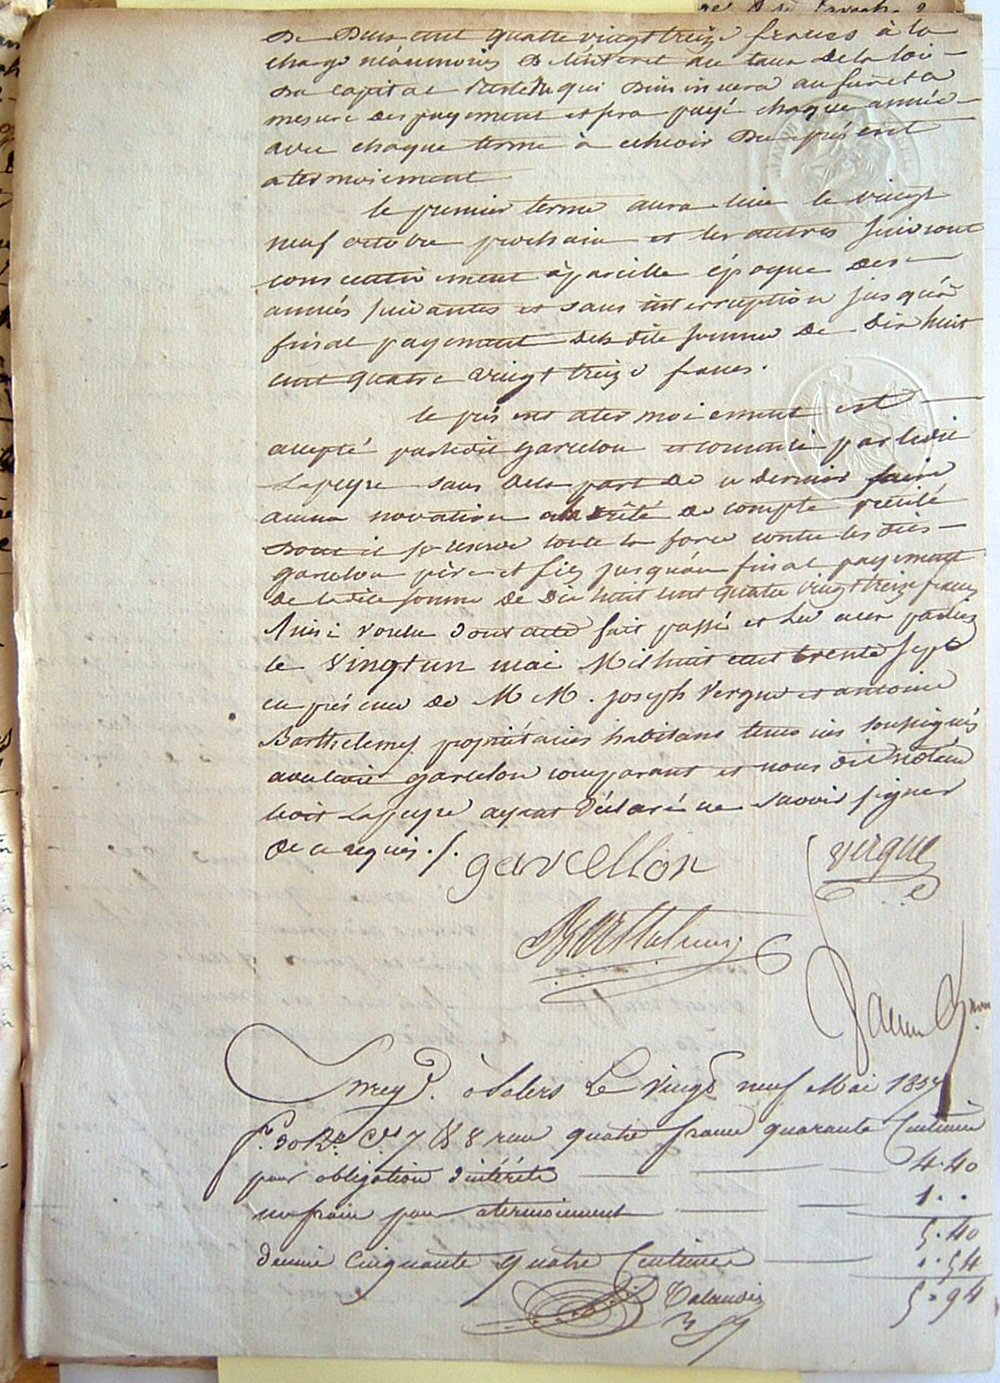 de Deux cent quatre vingt treize francs à la
charge néanmoins de l'intéret au taux de la loi
du capital restedu qui diminuera au fur et a
mesure des payement et sera payé chaque année
avec chaque terme à echeoir du présent
atermoiement
le premier terme aura lieu le vingt
neuf octobre prochain et les autres suivront
consecutivement à pareille époque des
années suivantes et sans interruption jusqu'à
final payement de ladite somme de dix huit
cent quatre vingt treize francs.
le présent atermoiement est
accepté par ledit garcelon et consenti par ledit
Lapeyre sans de la part de ce dernier faire
aucune novation de compte précité
dont il se reserve toute la force contre les dits
garcelon père et fils jusqu'au final payement
de ladite somme de dix huit cent quatre vingt treize francs
Ainsi voulu dont acte fait passé et lu aux parties
le vingt un mai Mil huit cent trente sept
en présence de M M. joseph Vergne et antoine
Barthelemy propriétaires habitans temoins soussignés
avec garcelon comparant et nous dit notaire
Lapeyre ayant déclaré ne savoir signer
de ce requis ./.
garcellon
vergne
Barthelemy
Enreg.é à Salers Le vingt neuf Mai 1837
f.o 30 R.o C.es 7 & 8 reçu quatre francs quarante Centimes
pour obligation d'intérêts 4.40
un franc pour atermoiement 1..
5.40
decime Cinquante quatre Centimes .54
5.94